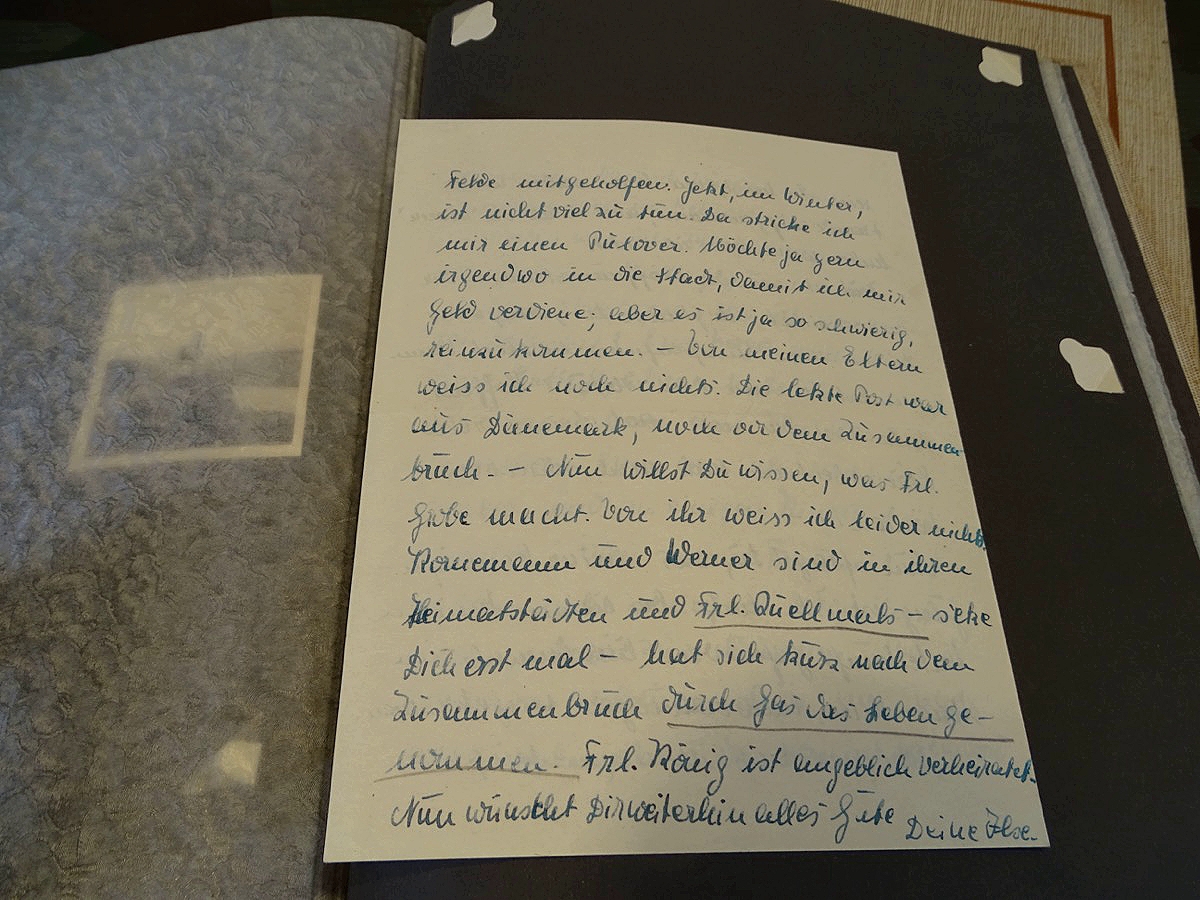 Felde mitgeholfen. Jetzt, im Winter,
ist nicht viel zu tun. Da stricke ich
mir einen Pulover. Möchte ja gern
irgendwo in die Stadt, damit ich mir
Geld verdiene; aber es ist ja so schwierig,
reinzukommen. – Von meinen Eltern
weiss ich noch nichts. Die letzte Post war
aus Dänemark, noch vor dem Zusammen-
bruch. – Nun willst Du wissen, was Frl.
Grobe macht. Von ihr weiss ich leider nichts.
Kornemann und Werner sind in ihren
Heimatstädten und Frl. Quellmals – setze
Dich erst mal – hat sich kurz nach dem
Zusammenbruch durch Gas das Leben ge-
nommen. Frl. König ist angeblich verheiratet.
Nun wünscht Dir weiterhin alles Gute Deine Ilse.